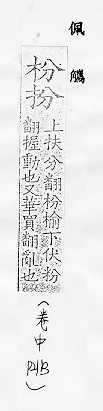 佩觿
枌扮
上扶分翻枌榆下伏粉
翻握動也又華買翻亂也
（卷中）